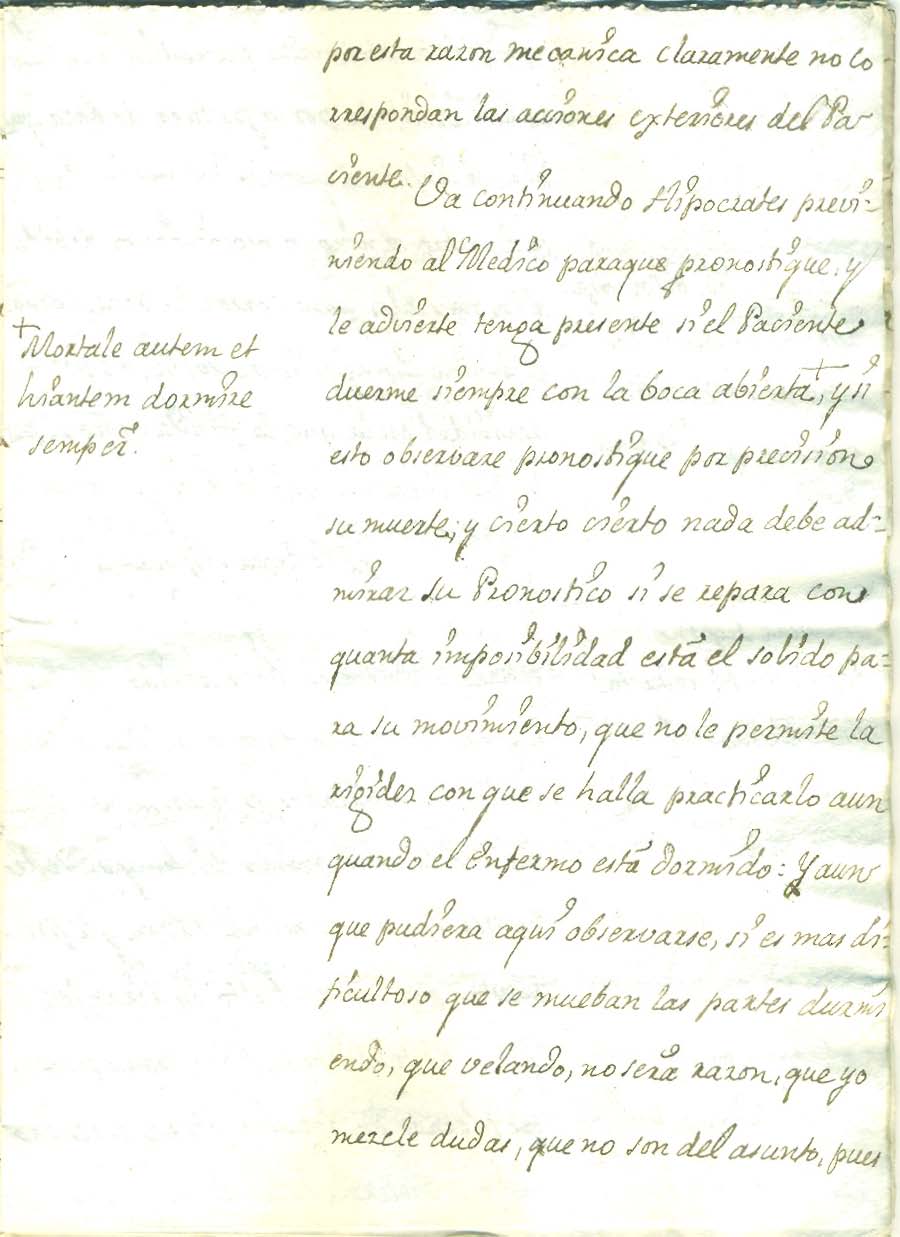 por esta razon mecanica claramente no co-
rrespondan las acciones exteriores del Pa-
ciente.
Va continuando Hipocrates previ-
niendo al Medico paraque pronostique, y
le advierte tenga presente si el Paciente
duerme siempre con la boca abierta+, y si
esto observare pronostique por precision
su muerte; y cierto cierto nada debe ad=
mirar su Pronostico si se repara con
quanta imposibilidad está el solido pa=
ra su movimiento, que no le permite la
rigidez con que se halla practicarlo aun
quando el enfermo está dormido: Y aun
que pudiera aqui observarse, si es mas di=
ficultoso que se mueban las partes durmi
endo, que velando, no será razon, que yo
mezcle dudas, que no son del asunto, pues
+Mortale autem et
hiantem dormire
semper.